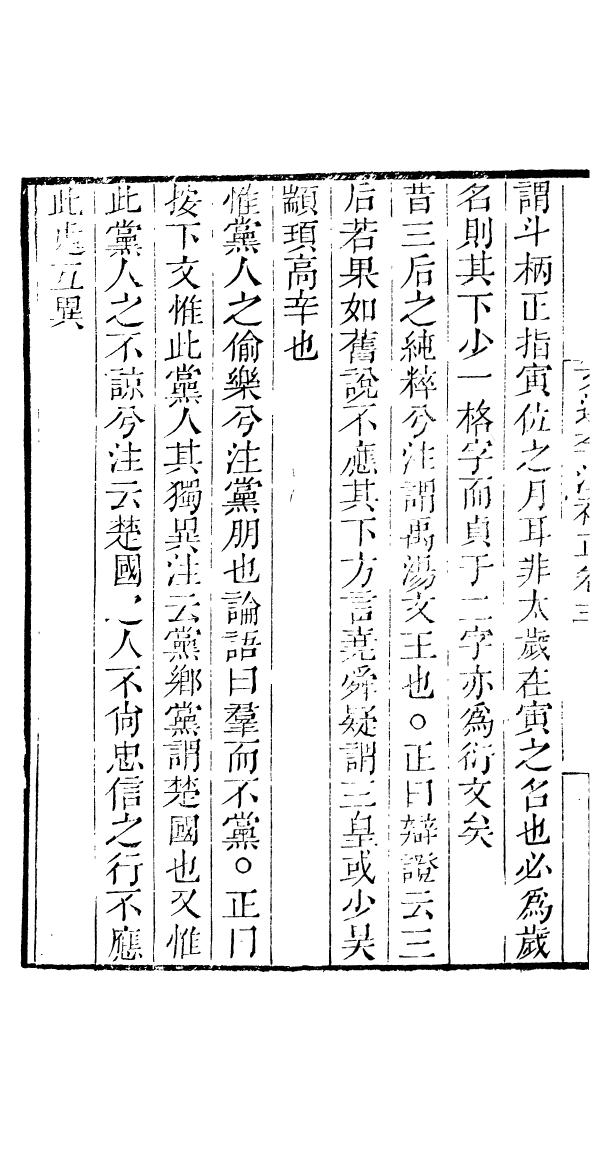 謂斗柄正指寅位之月耳非太歲在寅之名也必為歲
名則其下少一格字而貞于二字亦為衍文矣
昔三后之純粹兮注謂禹湯文王也○正曰辯證云三
后若果如舊說不應其下方言堯舜疑謂三皇或少昊
顓頊高辛也
惟黨人之偷樂兮注黨朋也論語曰羣而不黨○正曰
按下文惟此黨人其獨異注云黨鄉黨謂楚國也又惟
此黨人之不諒兮注云楚國之人不尙忠信之行不應
此處互異